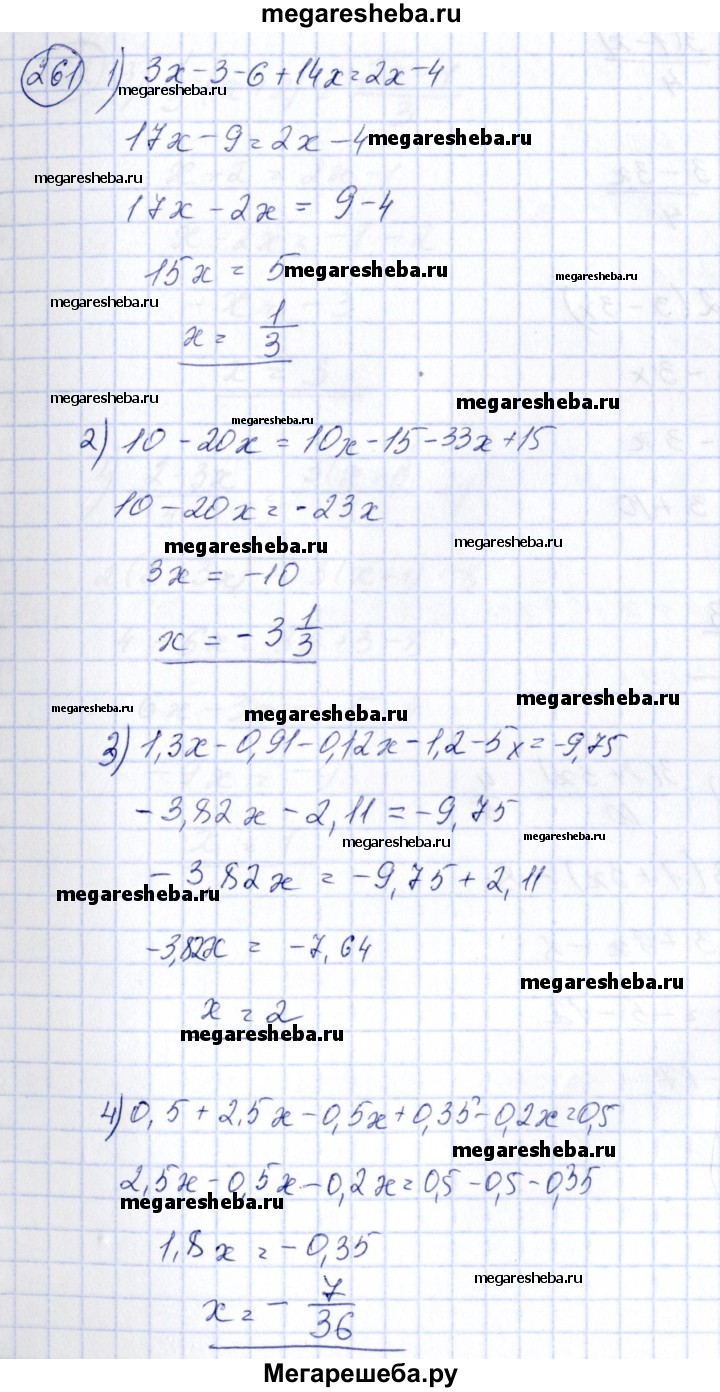 megaresheba.ru
261 1) 3x - 3 - 6 + 14x = 2x - 4
megaresheba.ru
17x - 9 = 2x - 4 megaresheba.ru
megaresheba.ru
17x - 2x = 9 - 4
15x = 5 megaresheba.ru megaresheba.ru
megaresheba.ru
x = 1/3
megaresheba.ru megaresheba.ru
megaresheba.ru
2) 10 - 20x = 10x - 15 - 33x + 15
10 - 20x = -23x
megaresheba.ru megaresheba.ru
3x = -10
x = -3 1/3
megaresheba.ru megaresheba.ru megaresheba.ru
3) 1,3x - 0,91 - 0,12x - 1,2 - 5x = -9,75
-3,82x - 2,11 = -9,75
megaresheba.ru megaresheba.ru
-3,82x = -9,75 + 2,11
megaresheba.ru
-3,82x = -7,64
megaresheba.ru
x = 2
megaresheba.ru
4) 0,5 + 2,5x - 0,5x + 0,35 - 0,2x = 0,5
megaresheba.ru
2,5x - 0,5x - 0,2x = 0,5 - 0,5 - 0,35
megaresheba.ru
1,8x = -0,35
megaresheba.ru
x = -7/36
Мегарешеба.ру